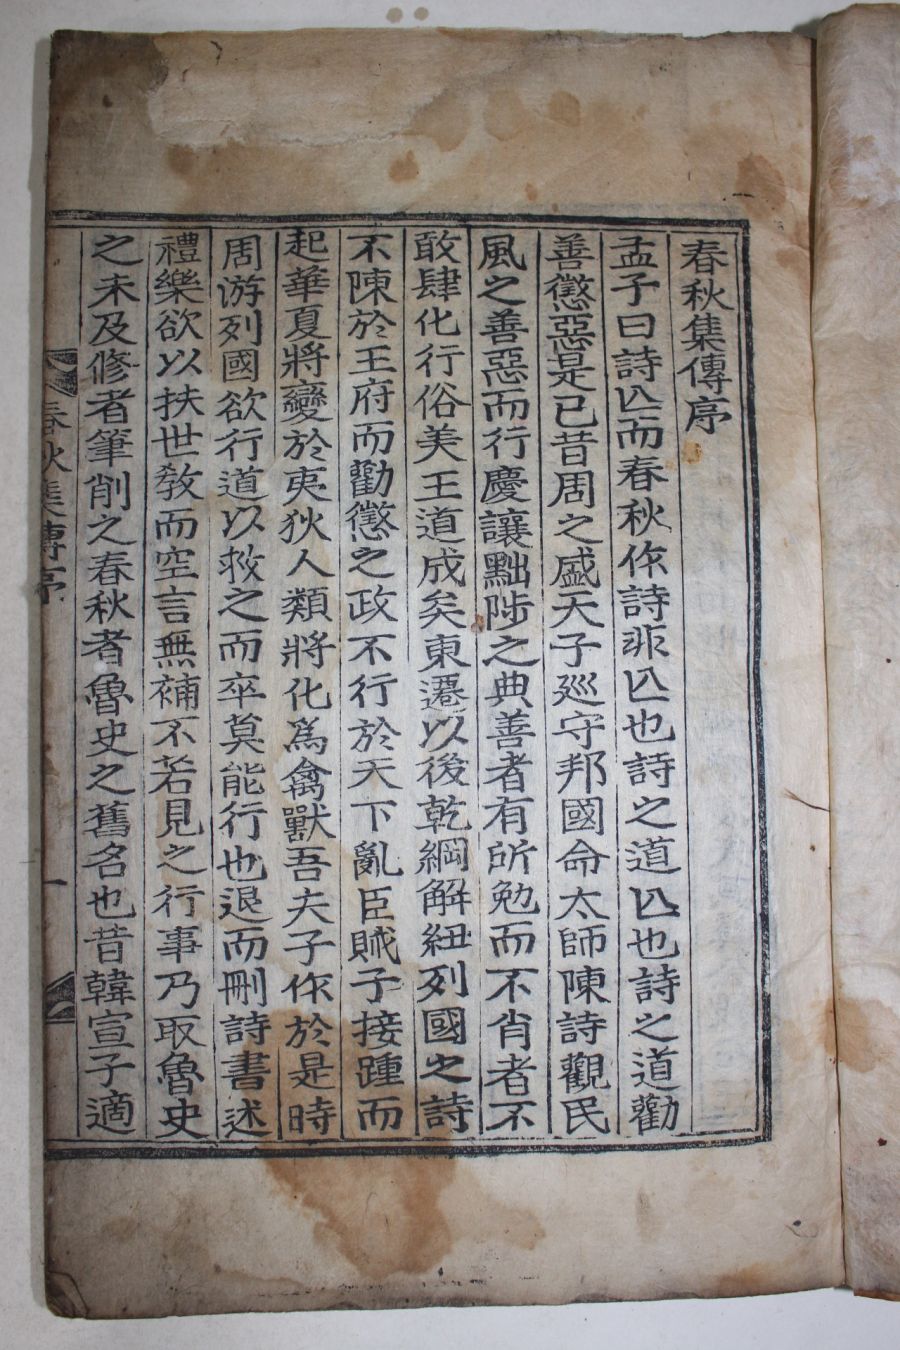 春秋集傳序
孟子曰詩亾而春秋作詩非亾也詩之道亾也詩之道勸
善懲惡是已昔周之盛天子廵守邦國命太師陳詩觀民
風之善惡而行慶讓黜陟之典善者有所勉而不肖者不
敢肆化行俗美王道成矣東遷以後乾綱解紐列國之詩
不陳於王府而勸懲之政不行於天下亂臣賊子接踵而
起華夏將變於夷狄人類將化爲禽獸吾夫子作於是時
周游列國欲行道以救之而卒莫能行也退而刪詩書述
禮樂欲以扶世敎而空言無補不若見之行事乃取魯史
之未及修者筆削之春秋者魯史之舊名也昔韓宣子適
春秋集傳序
一